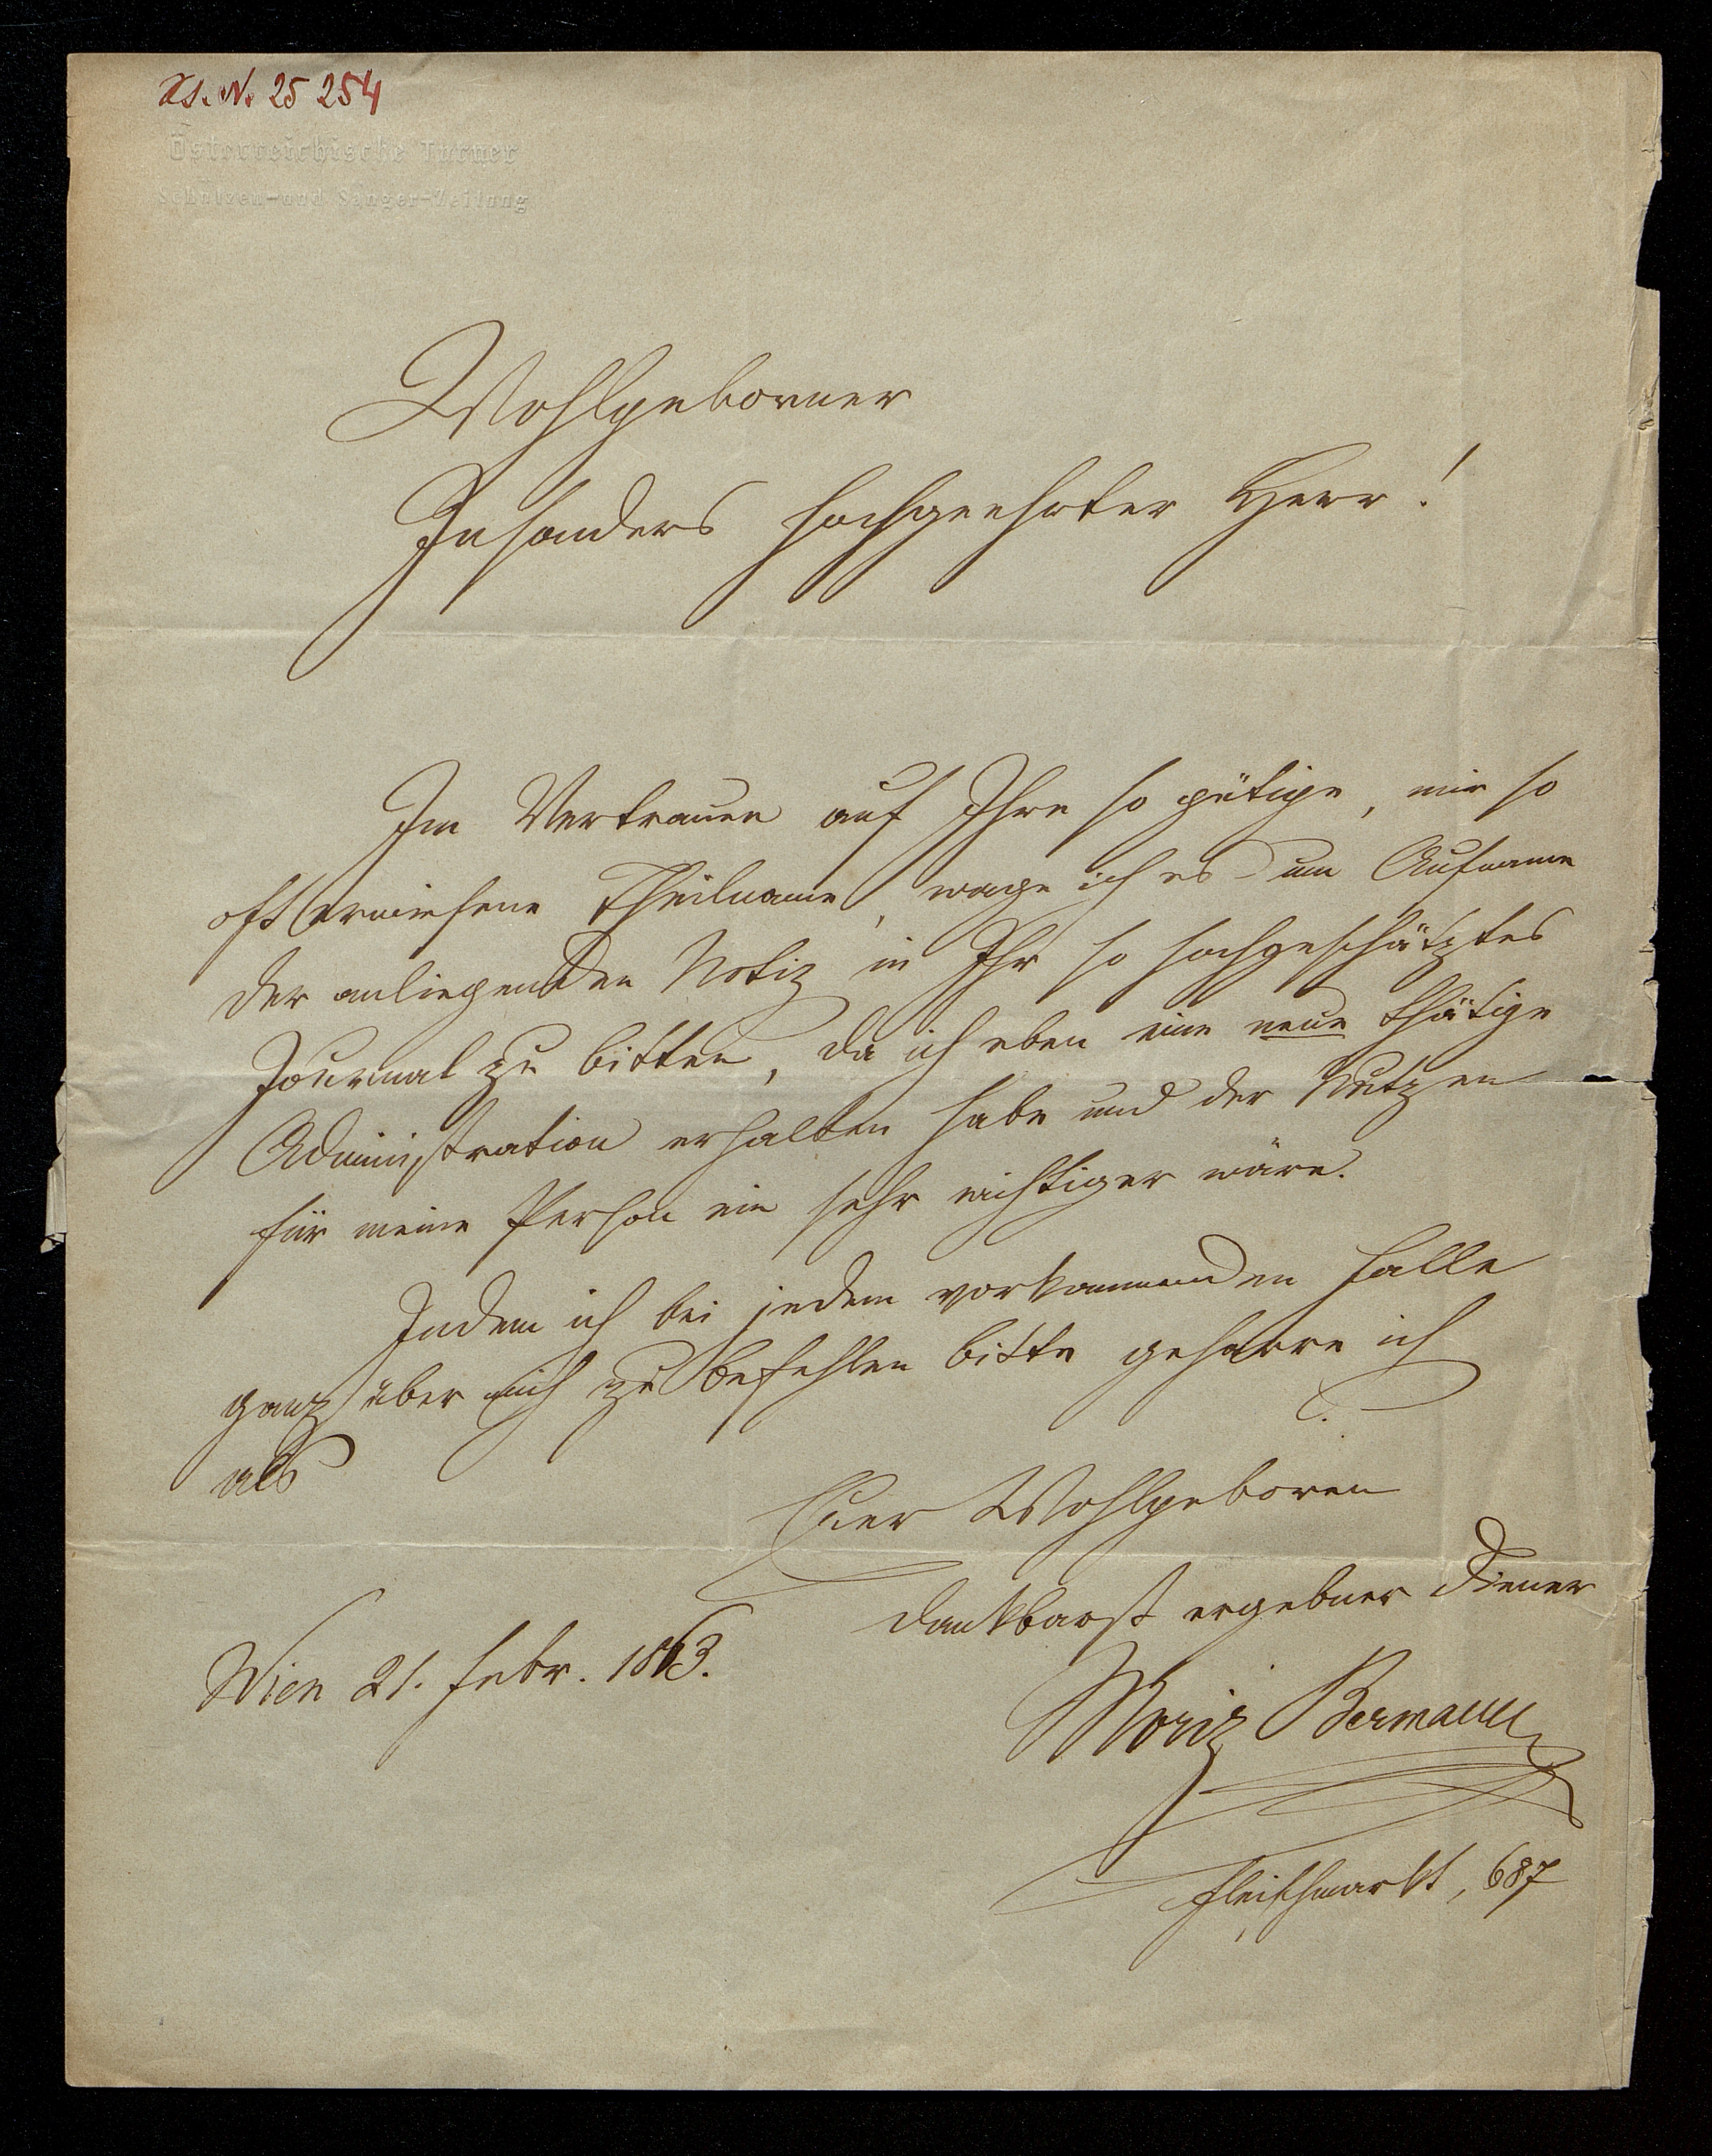 Hs. N. 25 254
Österreichische Turner
Schützen- und Sänger-Zeitung
Wohlgeborner
Insonders hochgeehrter Herr!
Im Vertrauen auf Ihre so gütige, mir so
oft erwiesene Theilname, wage ich es um Aufname
der anliegenden Notiz in Ihr so hochgeschätztes
Journal zu bitten, da ich eben eine neue thätige
Administration erhalten habe und der Nutzen
für meine Person ein sehr wichtiger wäre.
Indem ich bei jedem vorkommenden Falle
ganz über mich zu befehlen bitte geharre ich
als
Euer Wohlgeboren
dankbarst ergebner Diener
Wien 21. Febr. 1863.
Moriz Bermann
Fleischmarkt, 687